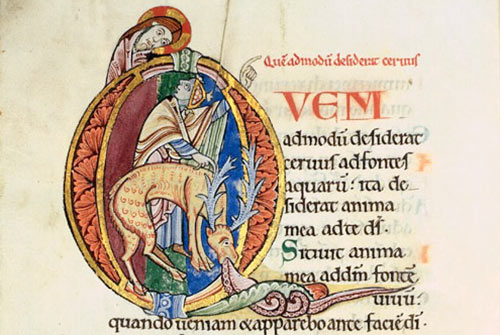 Quē admodū desiderat ceruus
QVEM
admodū desiderat
ceruus ad fontes
aquarū: ita de
siderat anima
mea ad te ds̄.
Sitiuit anima
mea ad dm̄ fontē
uiuū:
quando ueniam & apparebo ante faciē di